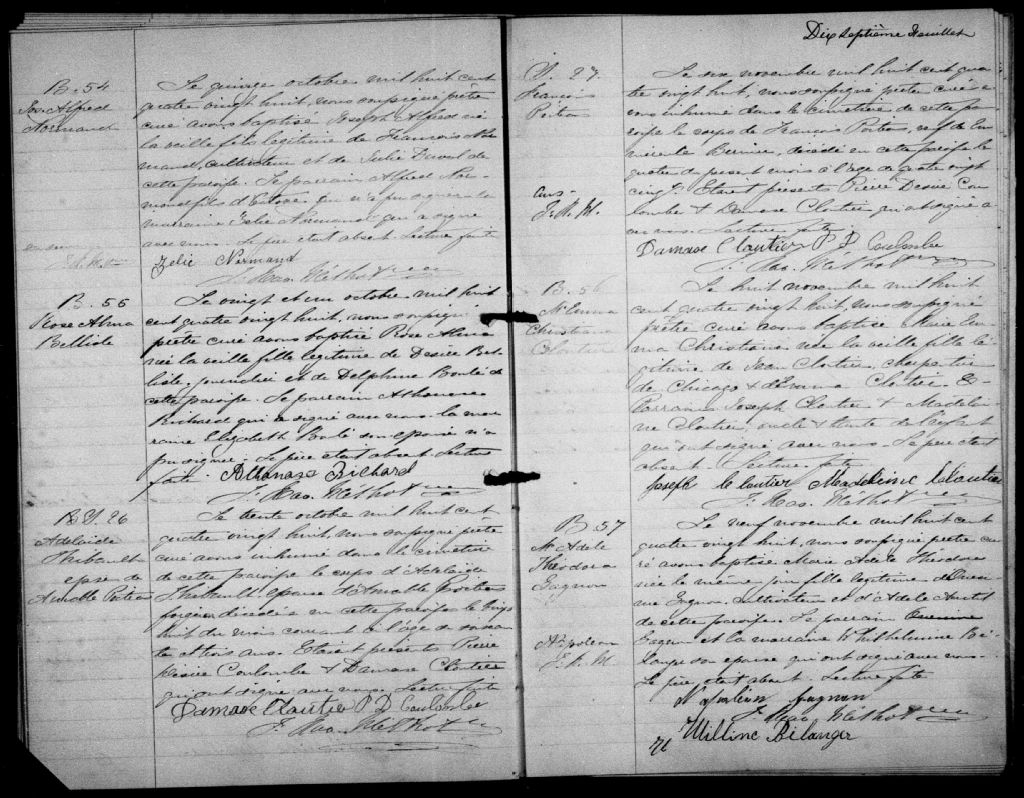 B. 54
Jos. Alfred
Normand
Le quinze octobre mil huit cent
quatre vingt huit, nous soussigné prêtre
curé avons baptisé Joseph Alfred né
la veille fils légitime de François Nor
mand, cultivateur et de Julie Duval de
cette paroisse. Le parrain Alfred Nor
mand fils d' qui n'a pu signer la
marraine Zelie Normand qui a signé
avec nous. Le père était absent. Lecture faite
Zelie Normand
J. Mao. Méthot ptre
B. 55
Rose Alma
Bellisle
Le vingt et un octobre mil huit
cent quatre vingt huit, nous soussigné
prêtre curé avons baptisé Rose Alma
née la veille fille légitime de Desiré Bel
lisle, journalier et de Delphine Boulé de
cette paroisse. Le parrain Athanase
Richard qui a signé avec nous la mar
raine Elizabeth Boulé son épouse n'a
pu signer. Le père était absent. Lecture
faite.
Athanase Richard
J. Mao. Méthot ptre
S. 26
Adelaide
Thibault
epse de
Amable Poitras
Le trente octobre mil huit cent
quatre vingt huit, nous soussigné prêtre
curé avons inhumé dans le cimetière
de cette paroisse le corps d'Adelaide
Thibault épouse d'Amable Poitras
forgeron décédée en cette paroisse le vingt
huit du mois courant à l'âge de soixan
te et trois ans. Etaient présents Pierre
Désiré Coulombe & Damase Cloutier
qui ont signé avec nous. Lecture faite
Damase Cloutier P D Coulombe
J. Mao. Méthot ptre
Dix septième feuillet
S. 27.
François
Poitras
Le six novembre mil huit cent qua
tre vingt huit, nous soussigné prêtre curé a
vons inhumé dans le cimetière de cette pa
roisse le corps de François Poitras, veuf de
Bernier, décédé en cette paroisse le
quatre du présent mois à l'âge de quatre vingt
cinq. Etaient présents Pierre Désiré Cou
lombe & Damase Cloutier qui ont signé a
vec nous. Lecture faite.
Damase Cloutier P D Coulombe
J. Mao. Méthot ptre
B. 56
M. Emma
Christiana
Cloutier
Le huit novembre mil huit
cent quatre vingt huit, nous soussigné
prêtre curé avons baptisé Marie Em
ma Christiana née la veille fille lé
gitime de Jean Cloutier, charpentier
de Chicago & d'Emma Cloutier.
Parrain Joseph Cloutier & Madelei
ne Cloutier, oncle & tante de l'enfant
qui ont signé avec nous. Le père était
absent. Lecture faite
Joseph Cloutier Madeleine Cloutier
J. Mao. Méthot ptre
B 57
M. Adele
Theodora
Gagnon
Le neuf novembre mil huit cent
quatre vingt huit, nous soussigné prêtre cu
ré avons baptisé Marie Adele Théodora
née le même jour fille légitime
Gagnon, cultivateur et d'Adele
de cette paroisse. Le parrain
Gagnon et la marraine Whilhelmine Bé
langer son épouse qui ont signé avec nous.
Le père était absent. Lecture faite
Napoléon Gagnon
J. Mao. Méthot ptre
Napoleon
J. M. M
Willine Bélanger